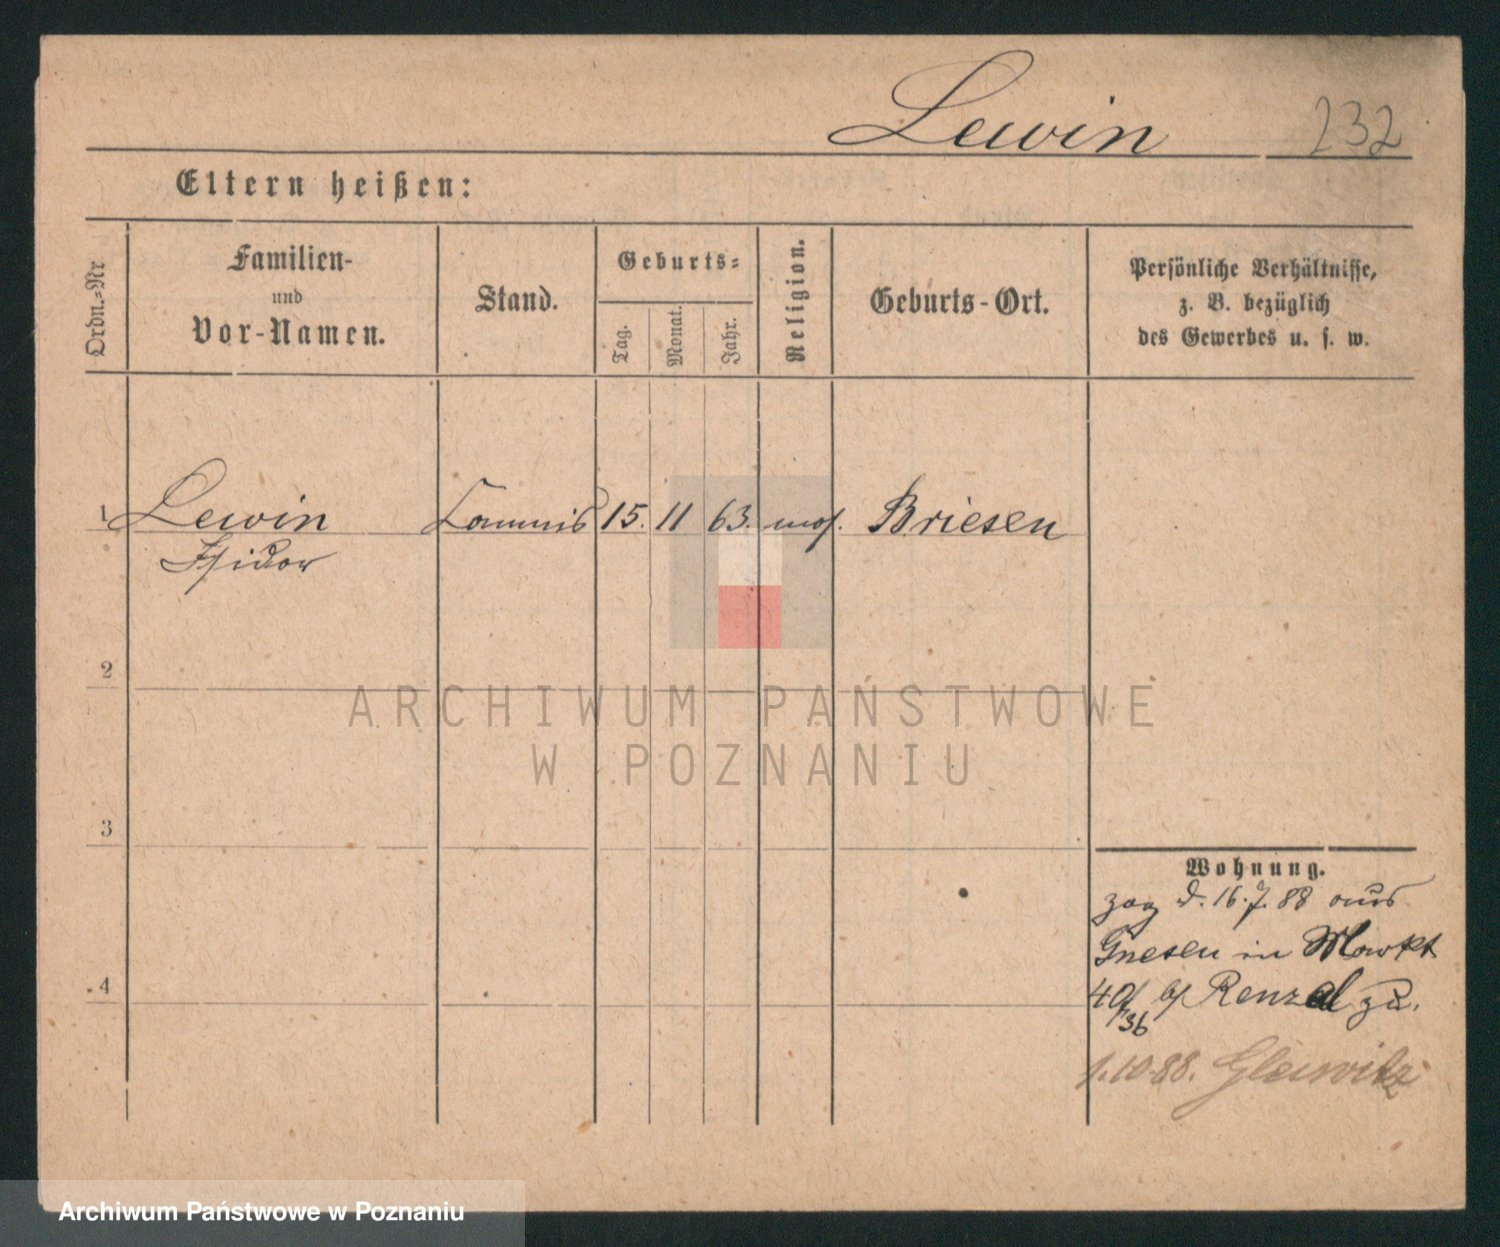 Lewin 232
Eltern heißen:
Ordn.-Nr
Familien-
und
Vor-Namen.
Stand.
Geburts-
Tag.
Monat.
Jahr.
Religion.
Geburts-Ort.
Persönliche Verhältnisse,
z. B. bezüglich
des Gewerbes u. s. w.
1 Lewin Commis 15. 11 63. mos. Briesen
Isidor
2
ARCHIWUM PAŃSTWOWE
W POZNANIU
3
Wohnung.
zog d. 16.7.88 aus
Gnesen in Markt
4
40/ b/ Renzel zu.
36
1.10.88. Gleiwitz
Archiwum Państwowe w Poznaniu